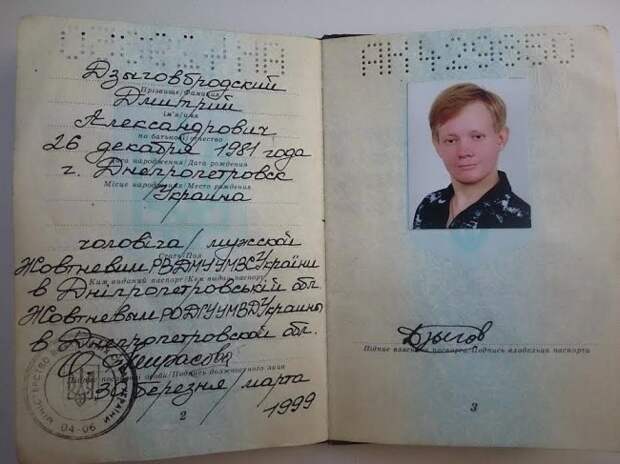 Дзыговбродский
Прізвище/Фамилия
Дмитрий
ім'я/имя
Александрович
по батькові/отчество
26 декабря 1981 года
Дата народження/Дата рождения
г. Днепропетровск
Місце народження/Место рождения
Украина
чоловіча/мужской
Стать/Пол
Жовтневим РВДМУУМВС України
Ким виданий паспорт/Кем выдан паспорт
в Дніпропетровській обл.
Жовтневым РОДГУУМВД Украины
в Днепропетровской обл.
Підпис посадової особи/Подпись должностного лица
30 березня/марта
1999
МІНІСТЕРСТВО УКРАЇНИ
04-06
2
Дзыгов
Підпис власника паспорта/Подпись владельца паспорта
3